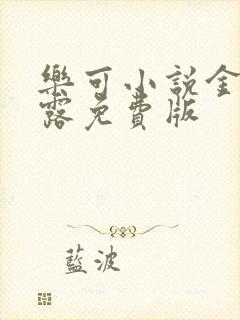 樂可小說金
露免費版
藍波